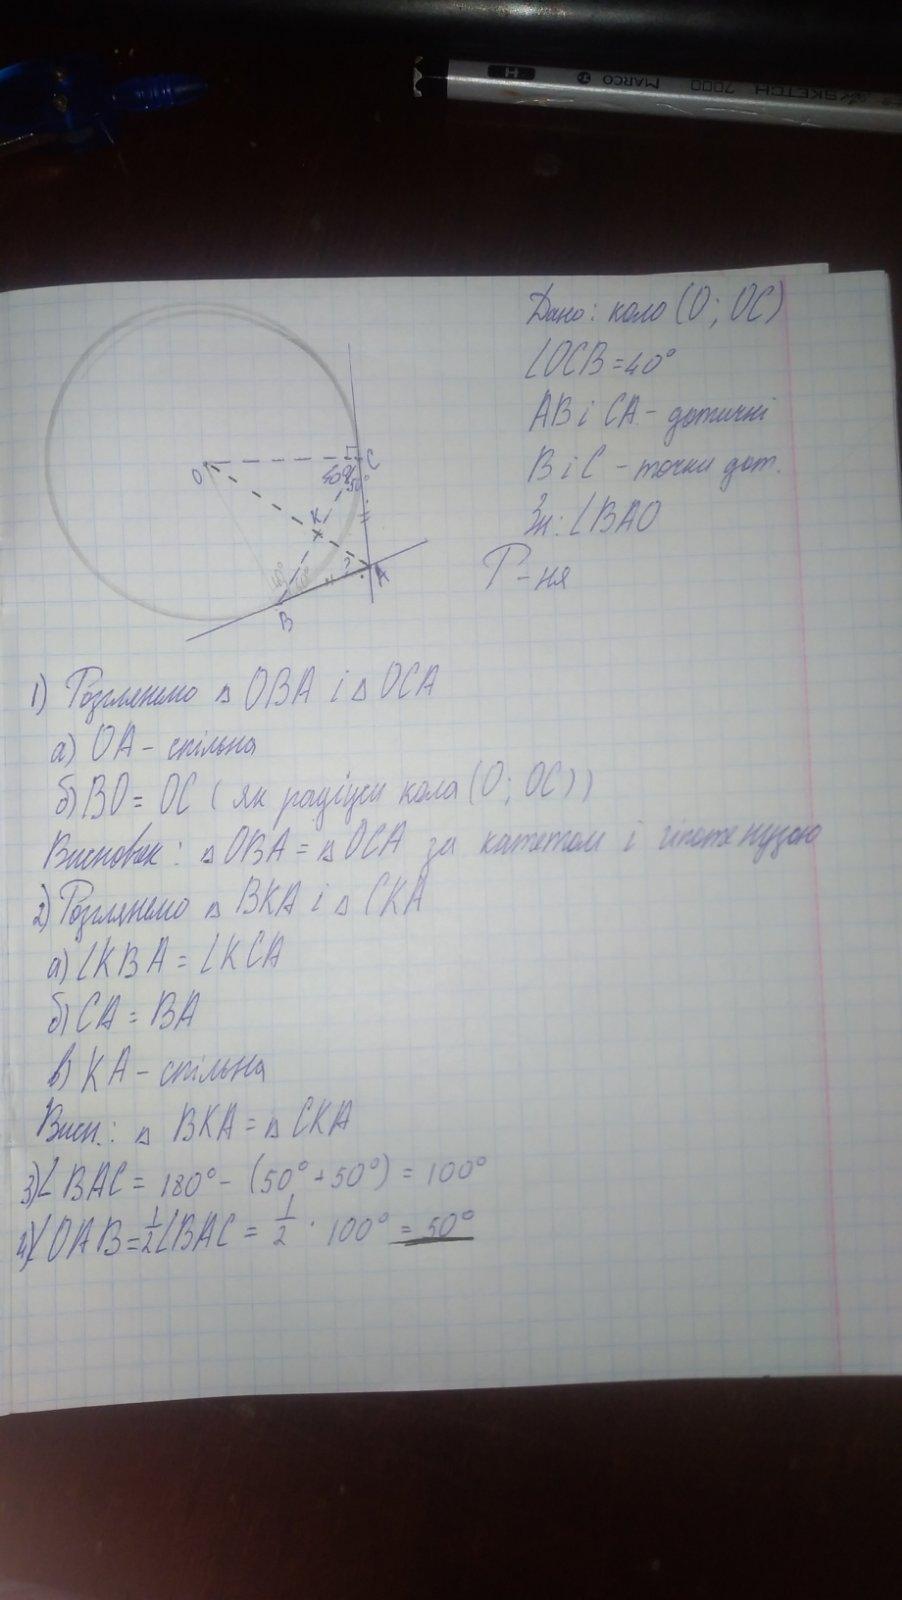 SKETCH 7000 MARCO H
Дано: коло (O; OC)
∠OCB = 40°
AB і CA - дотичні
B і C - точки дот.
Зн: ∠BAO
Р-ня
O
C
40°
50°
K
?
A
B
1) Розглянемо △ OBA і △ OCA
а) OA - спільна
б) BO = OC (як радіуси кола (O; OC))
Висновок: △ OBA = △ OCA за катетом і гіпотенузою
2) Розглянемо △ BKA і △ CKA
а) ∠KBA = ∠KCA
б) CA = BA
в) KA - спільна
Висн.: △ BKA = △ CKA
3) ∠BAC = 180° - (50° + 50°) = 100°
4) ∠OAB = 1/2 ∠BAC = 1/2 · 100° = 50°